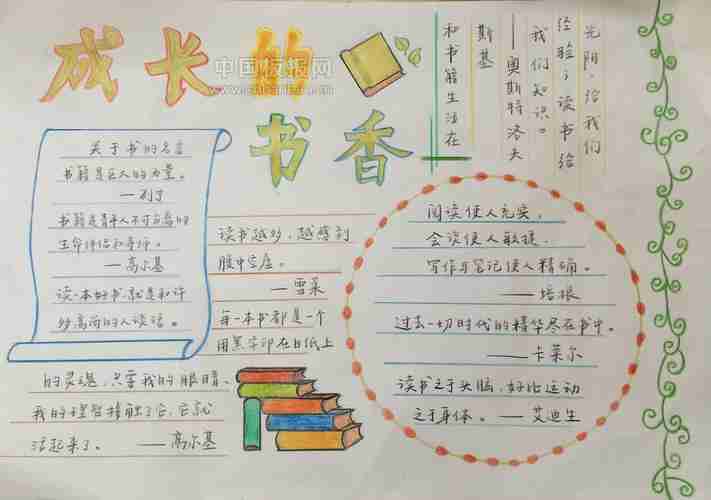 成长的
书香
中国板报网
关于书的名言
书籍是巨人的力量。
——列宁
生命伴侣和导师。
——高尔基
读一本好书,就是和许
多高尚的人谈话。
读书越多,越感到
腹中空虚。
——雪莱
每一本书都是一个
用黑字印在白纸上
的灵魂,只要我的眼睛、
我的理智接触了它,它就
活起来了。——高尔基
光阴,给我们
经验;读书给
我们知识。
——奥斯特洛夫
斯基
和书籍生活在
阅读使人充实,
会谈使人敏捷,
写作与笔记使人精确。
——培根
过去一切时代的精华尽在书中。
——卡莱尔
读书之于头脑,好比运动
之于身体。——艾迪生